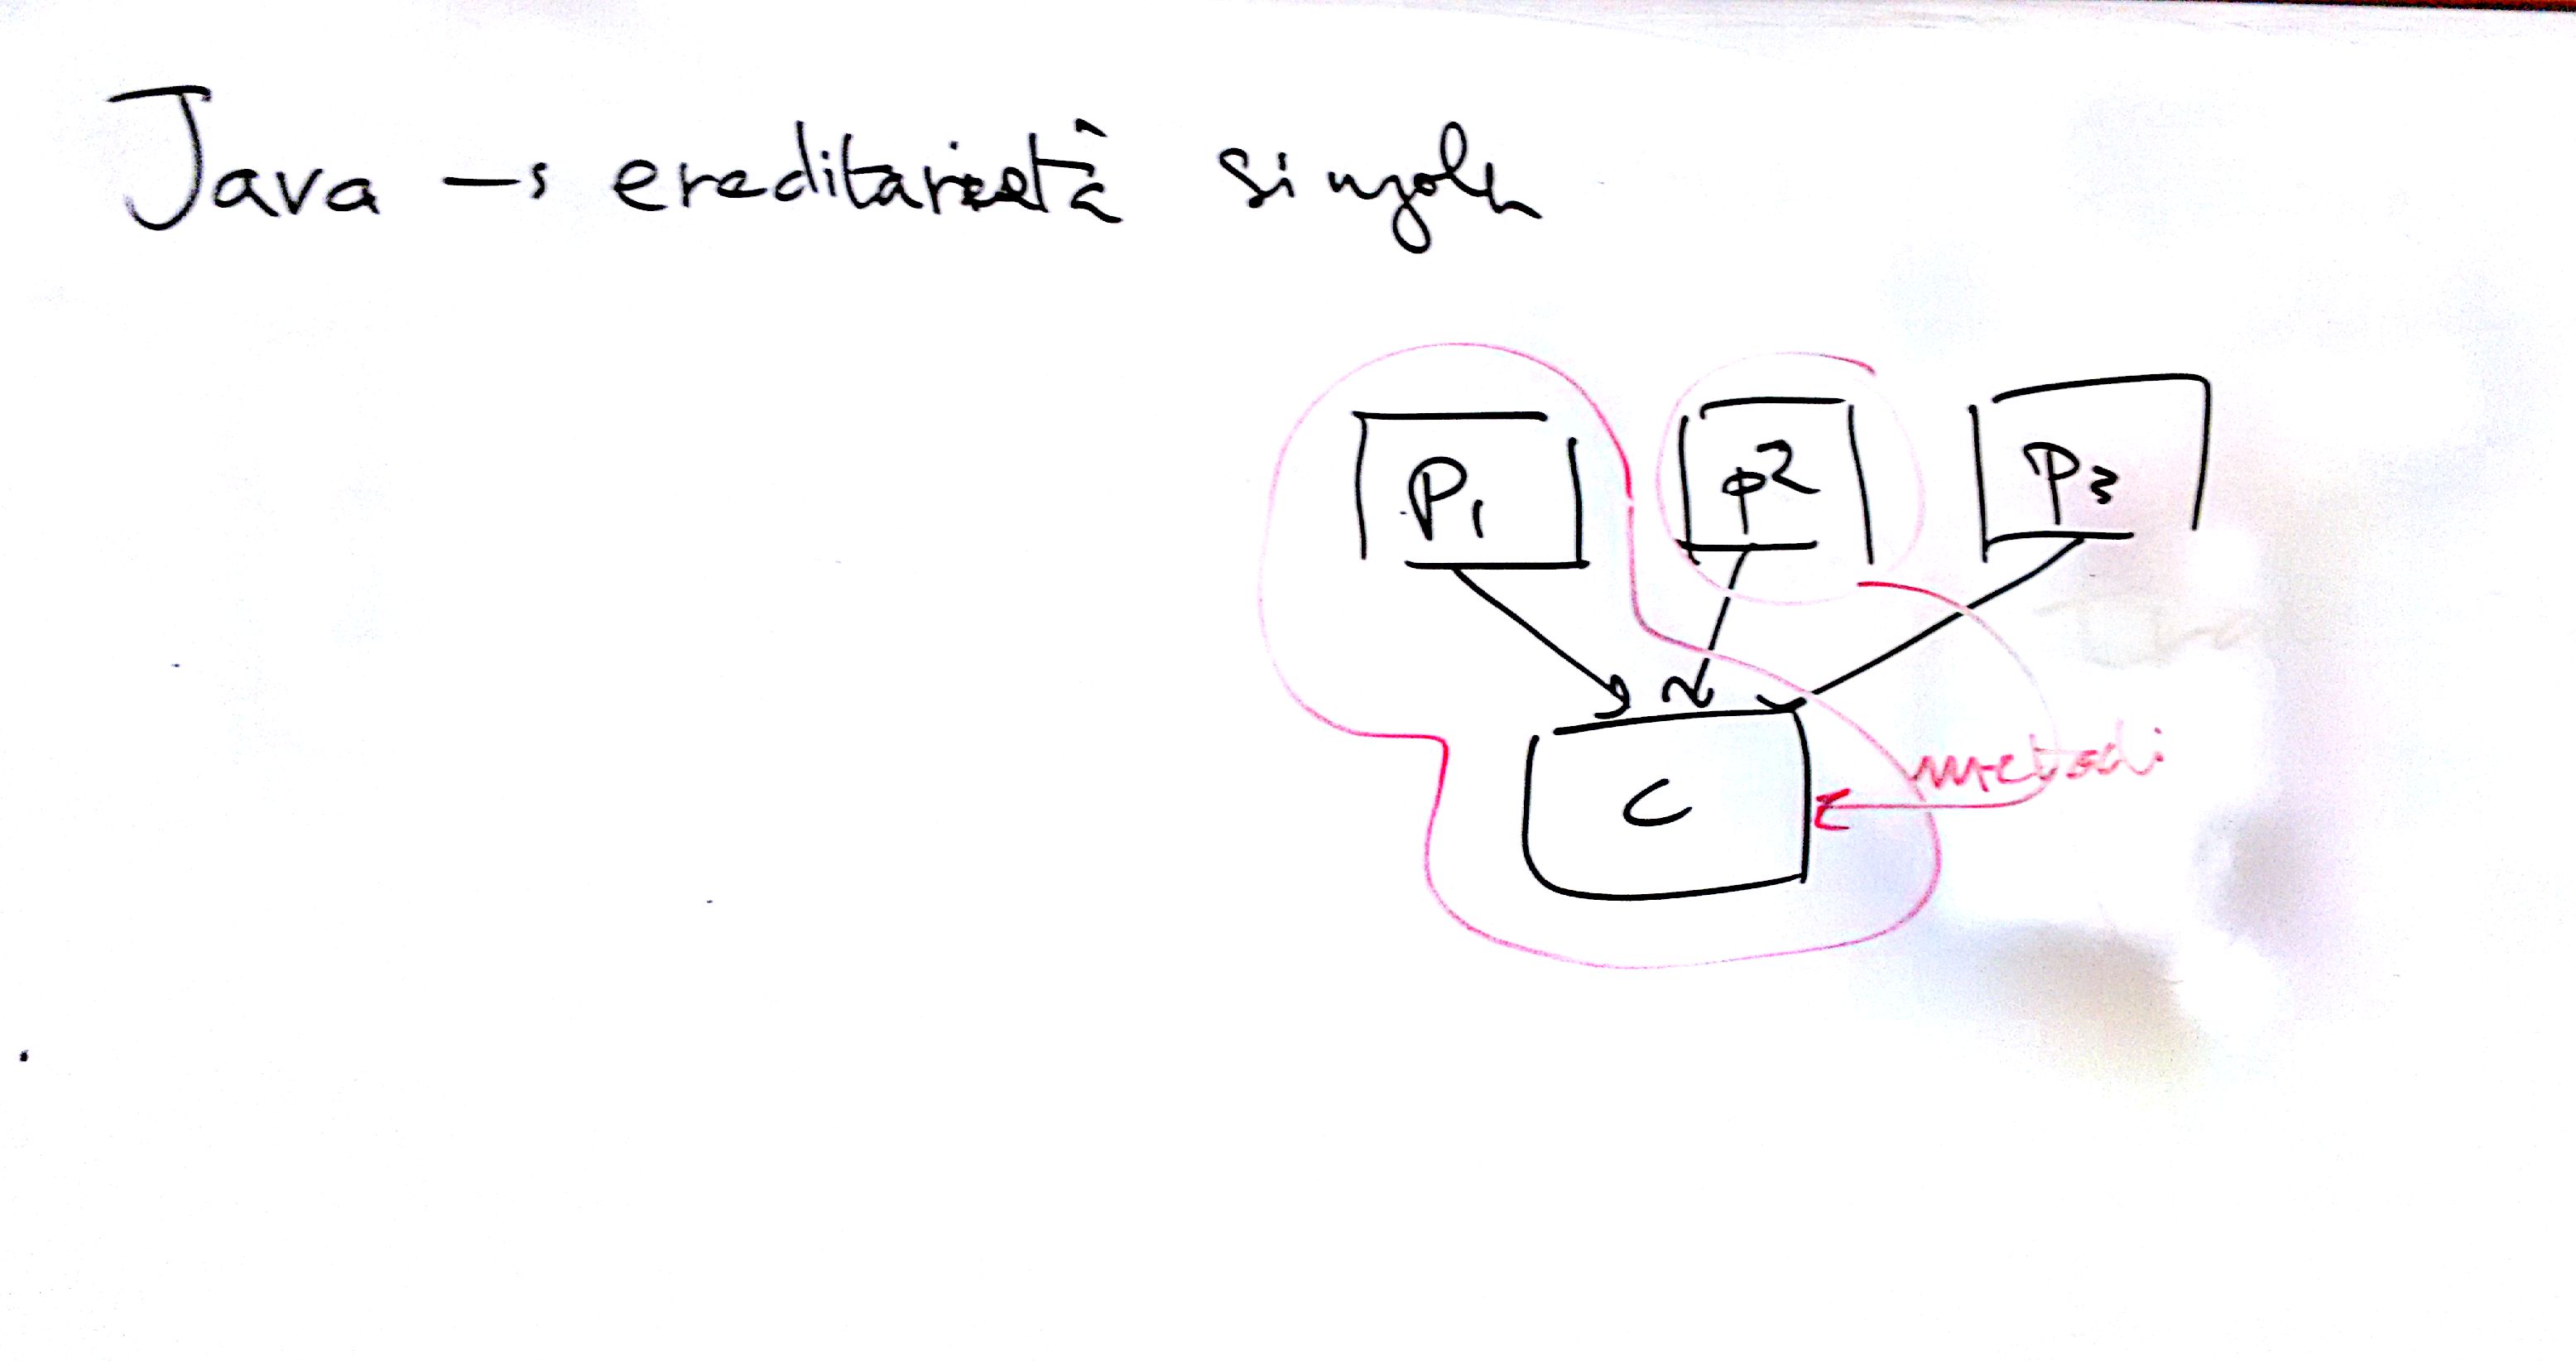 Java → ereditarietà singola
P1 P2 P3
C
metodi